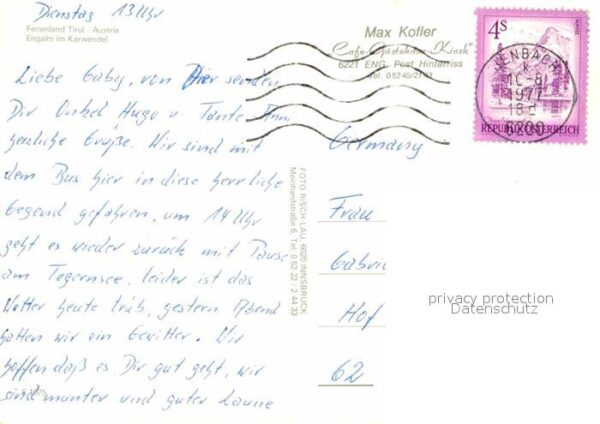 Dienstag 13 Uhr
Ferienland Tirol - Austria
Engalm im Karwendel
Liebe Gaby, von Hier senden
Dir Onkel Hugo u. Tante Anni
herzliche Grüße. Wir sind mit
dem Bus hier in diese herrliche
Gegend gefahren, um 14 Uhr
geht es wieder zurück mit Pause
am Tegernsee, leider ist das
Wetter heute trüb, gestern Abend
hatten wir ein Gewitter. Wir
hoffen daß es Dir gut geht, wir
sind munter und guter Laune
FOTO RISCH-LAU, 6020 INNSBRUCK
Meinhardstraße 6, Tel. 0 52 22 / 2 44 33
Max Kofler
"Cafe-Gästehaus-Kiosk"
6221 ENG, Post Hinterriss
Tel. 05245/
4S
ALMSEE
REPUBLIK ÖSTERREICH
JENBACH
10.-8
1977
18
6200
Germany
Frau
Gabri
Hof
62
privacy protection
Datenschutz